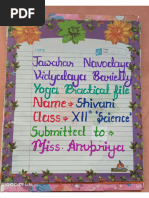 Jawahar Navodaya
Vidyalaya Bareilly
Yoga Practical file
Name → Shivani
Class → XIIth 'Science'
Submitted to →
Miss. Anupriya